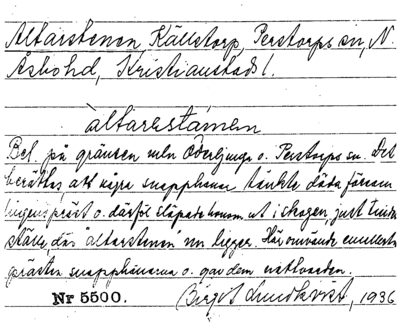 Altarstenen, Källstorp, Perstorps sn, N.
Åsbohd, Kristianstads l.
àltarestämen
Bel. på gränsen mln Oderljunga o. Perstorps sn. Det
berättas, att några snapphanar tänkte döda försam
lingens präst o. därför släpade honom ut i skogen, just till det
ställe, där "altarstenen" nu ligger. Här omvände emellertid
prästen snapphanarna o. gav dem nattvarden.
Nr 5500. Birgit Lundkvist, 1936